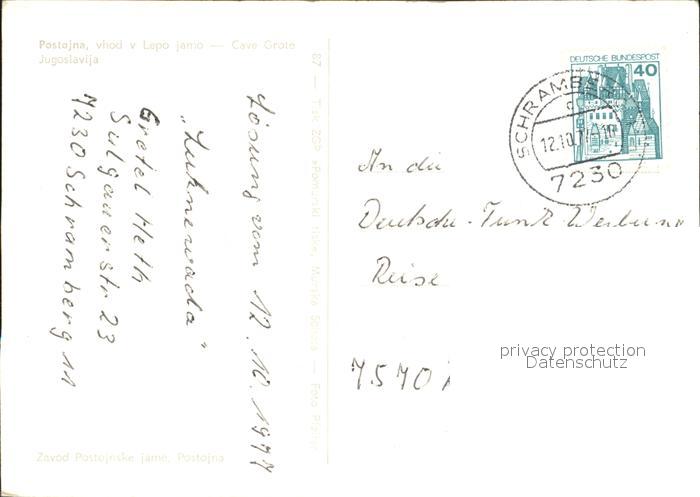 Postojna, vhod v Lepo jamo — Cave Grote
Jugoslavija
Lösung vom 12.10.1977
"Luknewada"
Gretel Heth
Sulgauerstr 23
7230 Schramberg 11
87 — Tisk ZGP »Pomurski tisk«, Murska Sobota — Foto
Zavod Postojnske jame, Postojna
DEUTSCHE BUNDESPOST
40
SCHRAMBERG
12.10.77
7230
An die
Deutsche-Funk Werbung
Reise
7570
privacy protection
Datenschutz